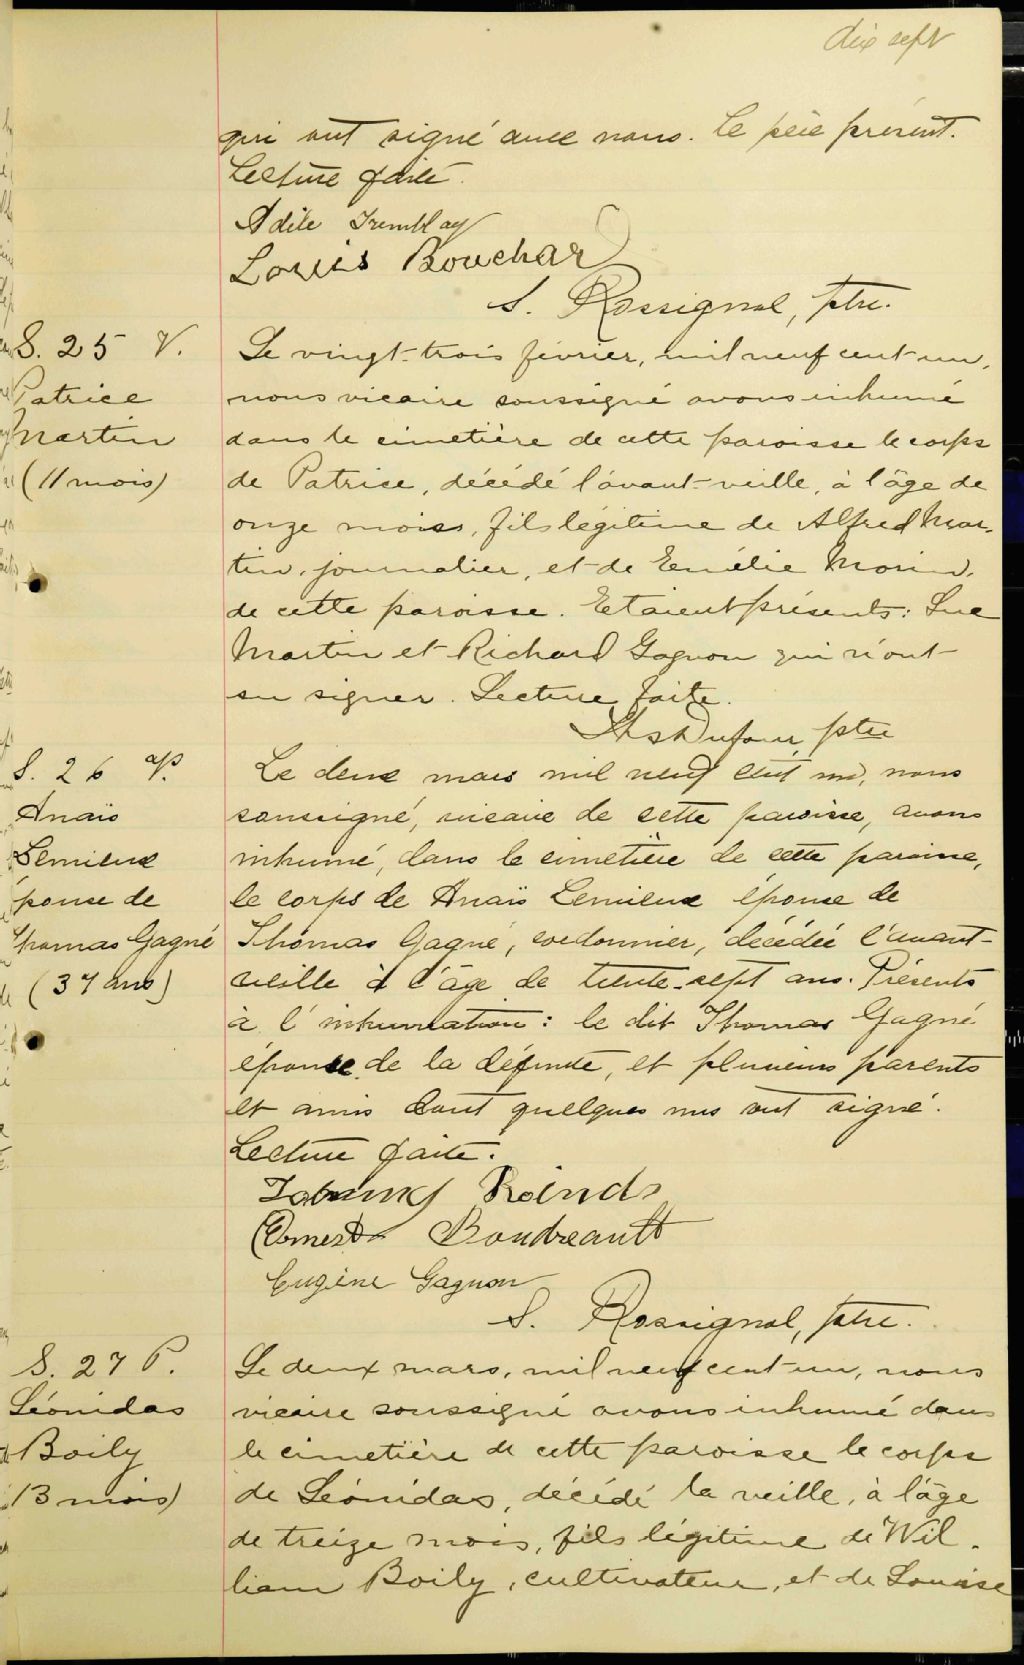 dix sept
qui ont signé avec nous. Le père présent.
Lecture faite.
Adèle Tremblay
Louis Bouchard
S. Rossignol, ptre.
S. 25 V.
Patrice
Martin
(11 mois)
Le vingt-trois février, mil neuf cent-un,
nous vicaire soussigné avons inhumé
dans le cimetière de cette paroisse le corps
de Patrice, décédé l'avant-veille, à l'âge de
onze mois, fils légitime de Alfred Mar-
tin, journalier, et de Emélie Morin,
de cette paroisse. Etaient présents: Luc
Martin et Richard Gagnon qui n'ont
su signer. Lecture faite.
Dufour, ptre
S. 26
Anaïs
Lemieux
épouse de
Thomas Gagné
(37 ans)
Le deux mars mil neuf cent un, nous
soussigné, vicaire de cette paroisse, avons
inhumé, dans le cimetière de cette paroisse,
le corps de Anaïs Lemieux épouse de
Thomas Gagné, cordonnier, décédée l'avant-
veille à l'âge de trente-sept ans. Présents
à l'inhumation: le dit Thomas Gagné
épouse de la défunte, et plusieurs parents
et amis dont quelques uns ont signé.
Lecture faite.
Ernest Boudreault
Eugène Gagnon
S. Rossignol, ptre.
S. 27 P.
Léonidas
Boily
13 mois)
Le deux mars, mil neuf cent-un, nous
vicaire soussigné avons inhumé dans
le cimetière de cette paroisse le corps
de Léonidas, décédé la veille, à l'âge
de treize mois, fils légitime de Wil-
liam Boily, cultivateur, et de Louise